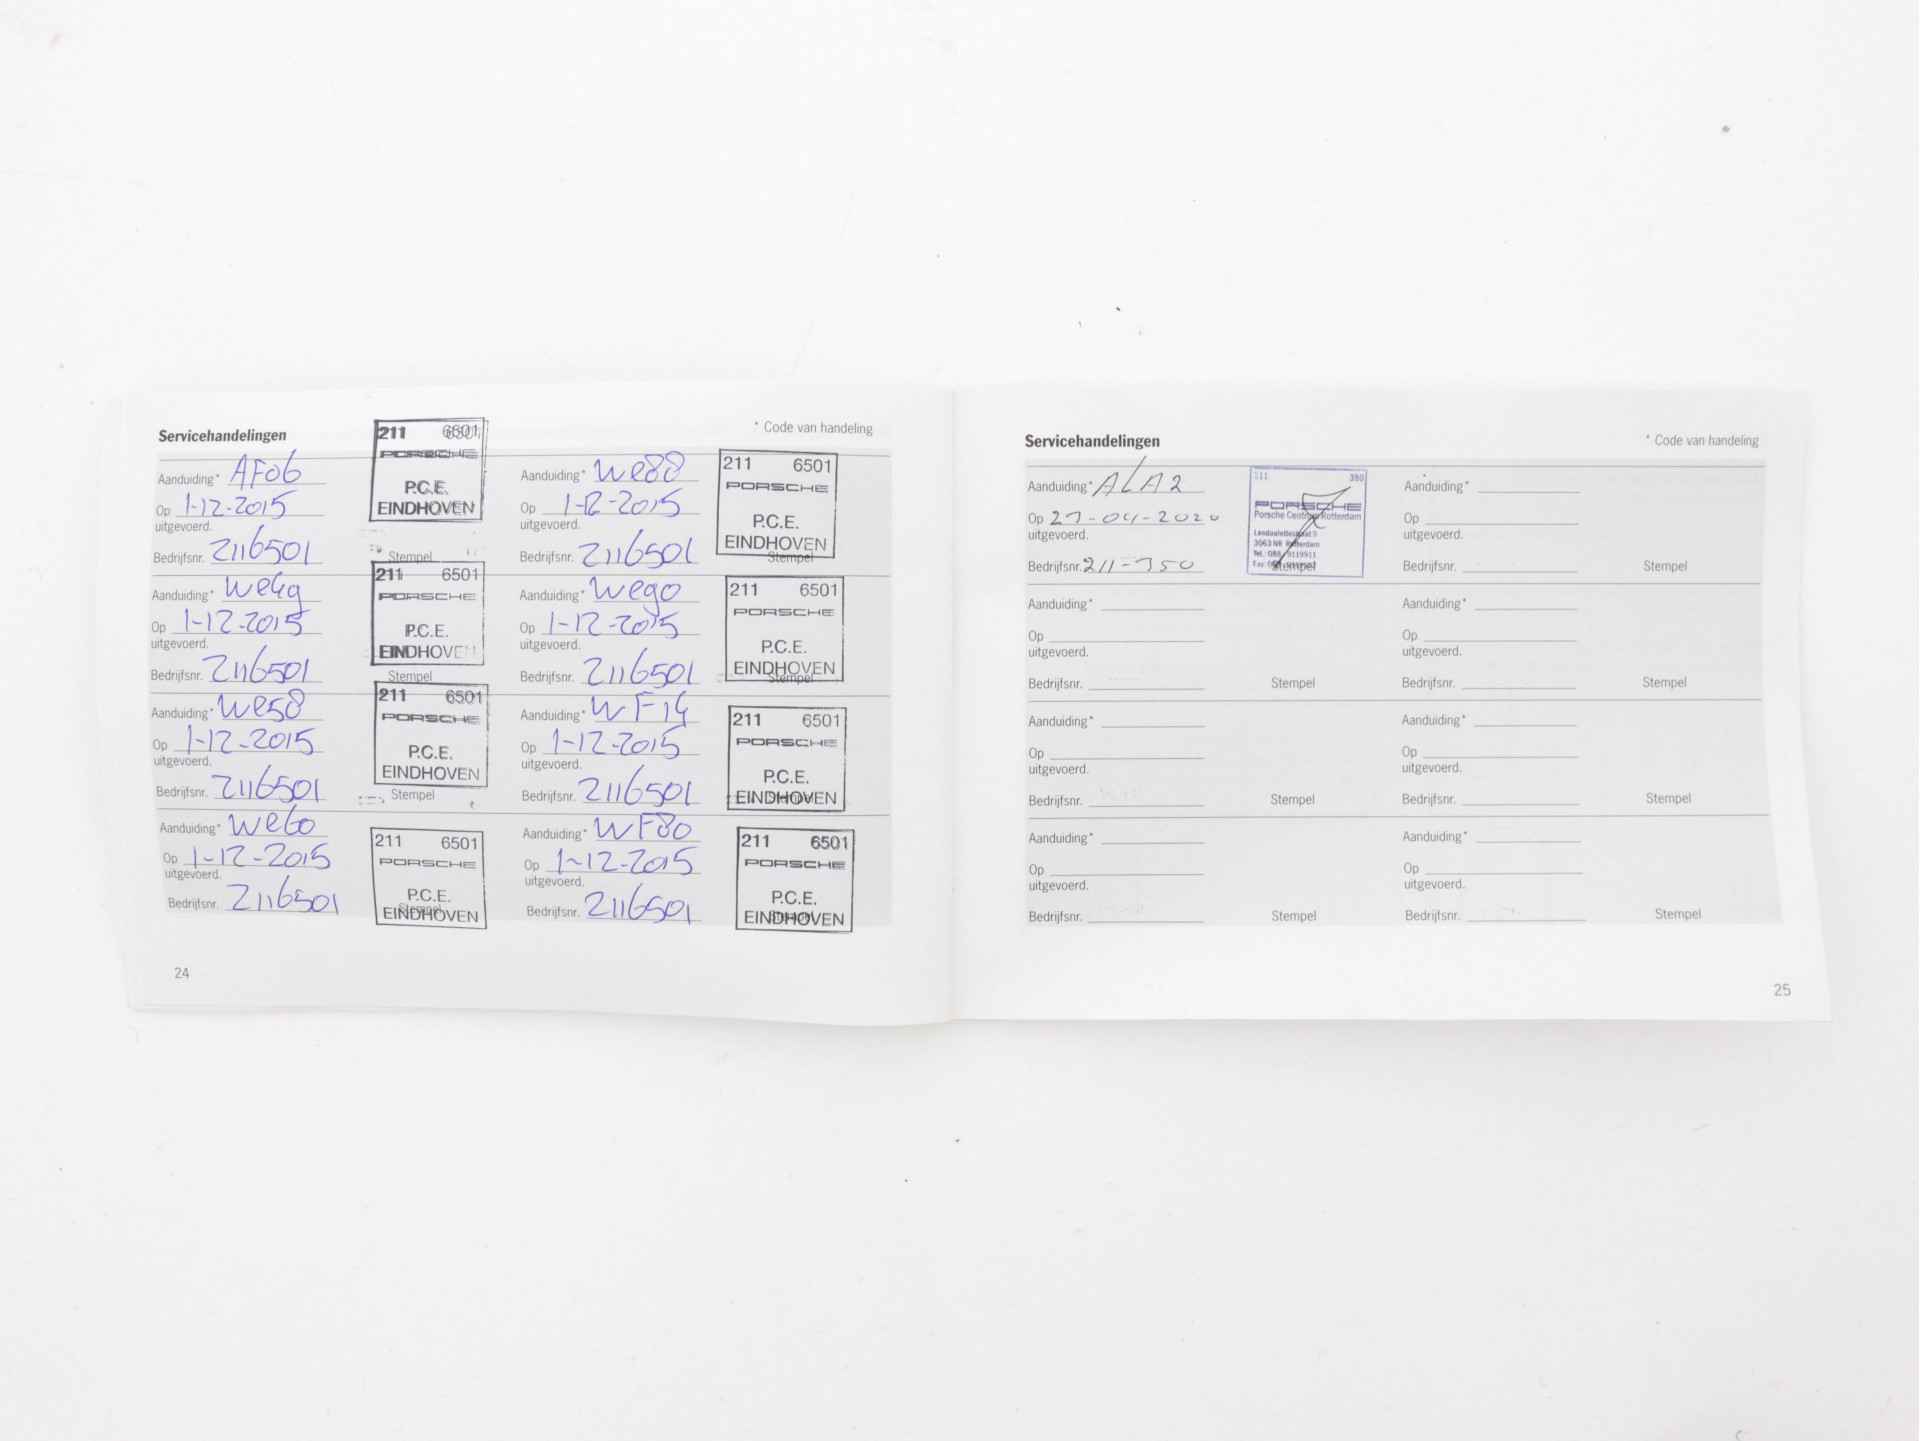 Servicehandelingen
* Code van handeling
Aanduiding* AF06
Op 1-12-2015
uitgevoerd.
Bedrijfsnr. 2116501
Stempel
211 6501
PORSCHE
P.C.E.
EINDHOVEN
Aanduiding* We88
Op 1-12-2015
uitgevoerd.
Bedrijfsnr. 2116501
Stempel
211 6501
PORSCHE
P.C.E.
EINDHOVEN
Aanduiding*
Op 1-12-2015
uitgevoerd.
Bedrijfsnr. 2116501
Stempel
211 6501
PORSCHE
P.C.E.
EINDHOVEN
Aanduiding* We90
Op 1-12-2015
uitgevoerd.
Bedrijfsnr. 2116501
Stempel
211 6501
PORSCHE
P.C.E.
EINDHOVEN
Aanduiding* We58
Op 1-12-2015
uitgevoerd.
Bedrijfsnr. 2116501
Stempel
211 6501
PORSCHE
P.C.E.
EINDHOVEN
Aanduiding* WF14
Op 1-12-2015
uitgevoerd.
Bedrijfsnr. 2116501
Stempel
211 6501
PORSCHE
P.C.E.
EINDHOVEN
Aanduiding* We60
Op 1-12-2015
uitgevoerd.
Bedrijfsnr. 2116501
Stempel
211 6501
PORSCHE
P.C.E.
EINDHOVEN
Aanduiding* WF80
Op 1-12-2015
uitgevoerd.
Bedrijfsnr. 2116501
Stempel
211 6501
PORSCHE
P.C.E.
EINDHOVEN
24
Servicehandelingen
* Code van handeling
Aanduiding* ALA2
Op 27-04-2020
uitgevoerd.
Bedrijfsnr. 211-350
Stempel
211 350
PORSCHE
Porsche Centrum Rotterdam
3063 NR Rotterdam
Tel.: 088 - 9119911
Aanduiding*
Op
uitgevoerd.
Bedrijfsnr.
Stempel
Aanduiding*
Op
uitgevoerd.
Bedrijfsnr.
Stempel
Aanduiding*
Op
uitgevoerd.
Bedrijfsnr.
Stempel
Aanduiding*
Op
uitgevoerd.
Bedrijfsnr.
Stempel
Aanduiding*
Op
uitgevoerd.
Bedrijfsnr.
Stempel
Aanduiding*
Op
uitgevoerd.
Bedrijfsnr.
Stempel
Aanduiding*
Op
uitgevoerd.
Bedrijfsnr.
Stempel
25